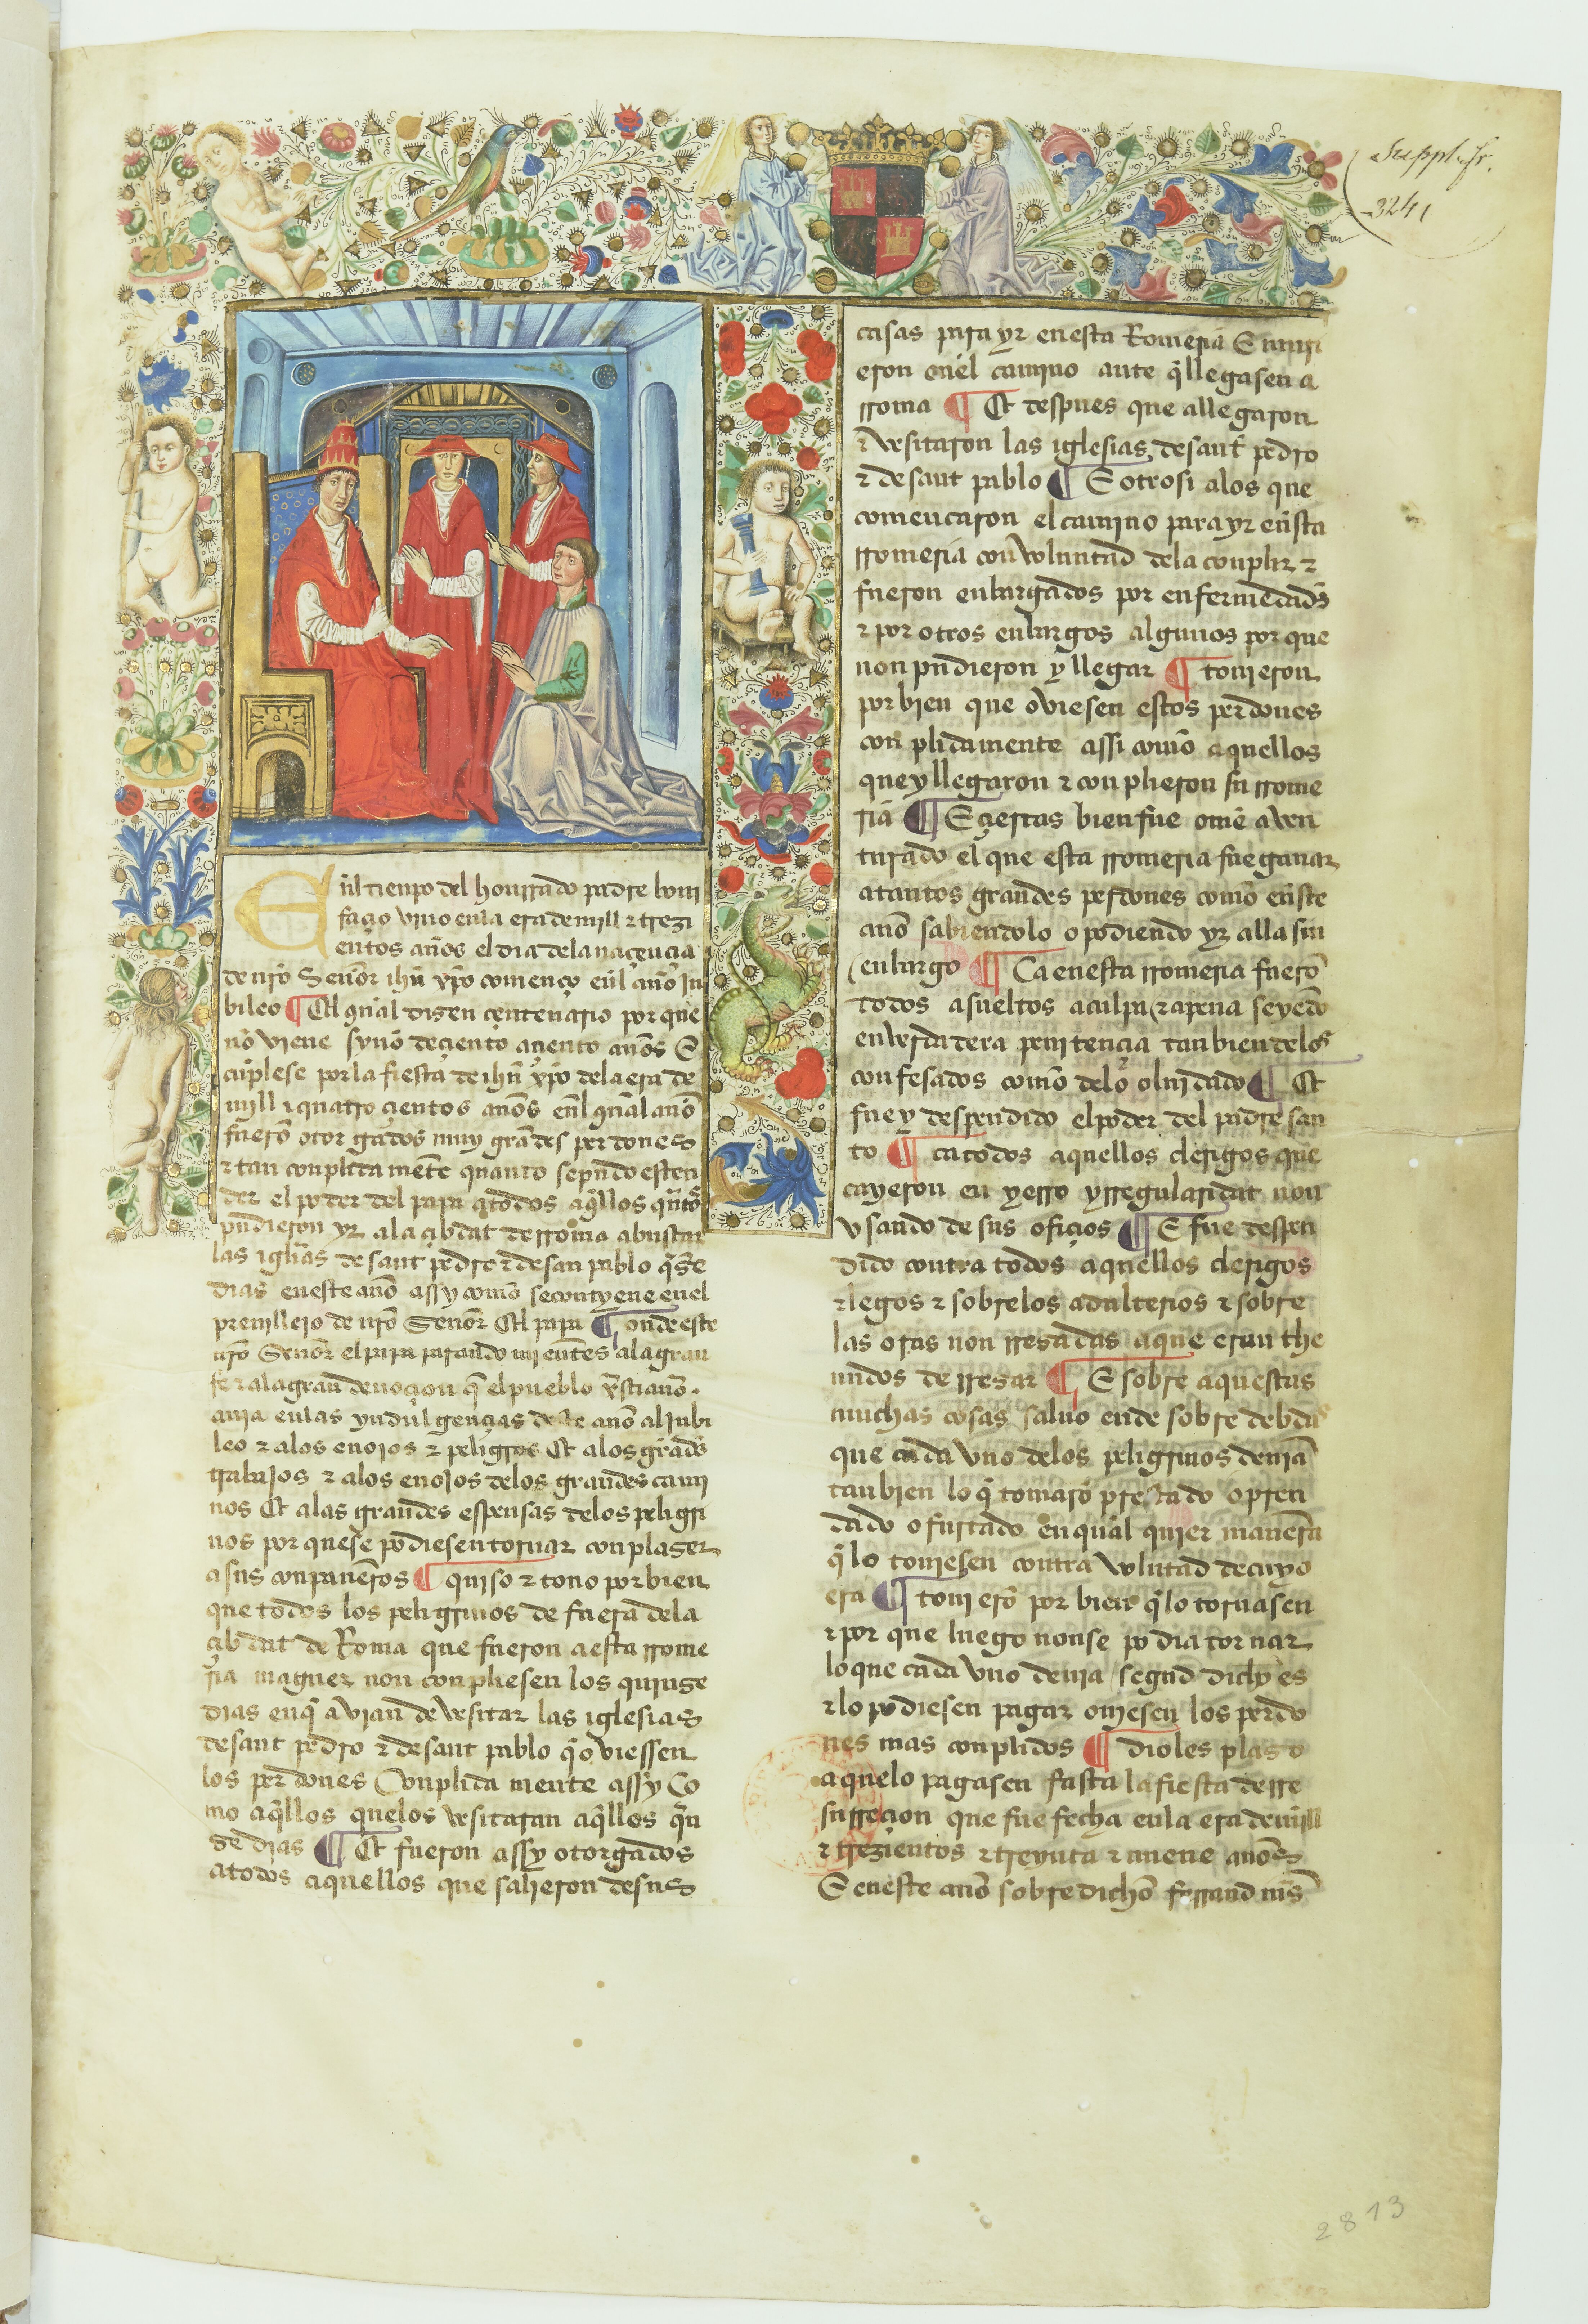 Suppl. fr.
3241
Enl tienpo del honrrado padre boni
façio vino enla era de mill & trezi
entos años el dia dela naçençia
de nr̃o Señor ihũ xp̃o començo enl año Ju
bileo ¶ El qual disen çentenario por que
nõ viene synõ de çiento a çiento años E
cũplese por la fiesta de ihũ xp̃o dela era de
mill & quatro çientos años enl qual año
fuerõ otorgados muy grãdes perdones
& tan conplida mẽte quanto se pudo esten
der el poder del papa a todos aq̃llos q̃ntos
pudieron yr ala çibdat de rroma a buscar
las igl̃ias de sant pedro & de san pablo q̃nse
dias en este año assy como se contyene enel
preuillejo de nr̃o Señor El papa ¶ onde este
nr̃o Señor el papa parando mientes ala gran
fe & ala gran deuoçion q̃ el pueblo xp̃stiano
auia enlas yndulgençias deste año al jubi
leo & alos enojos & peligros Et alos grãdes
trabajos & alos enojos delos grandes cami
nos Et alas grandes espensas delos peligri
nos por que se podiesen tornar con plaser
a sus conpañeros ¶ quiso & touo por bien
que todos los peligrinos de fuera dela
çibdat de Roma que fueron a esta rrome
ria maguer non conpliesen los quinse
dias enq̃ avian de vesitar las iglesias
de sant pedro & de sant pablo q̃ oviessen
los perdones Conplida mente assy Co
mo aq̃llos que los vesitaran aq̃llos q̃n
se dias ¶ Et fueron assy otorgados
a todos aquellos que salieron de sus
casas para yr en esta Romeria E muri
eron enel camino ante q̃ llegasen a
rroma ¶ Et despues que allegaron
& vesitaron las iglesias de sant pedro
& de sant pablo ¶ E otrosi alos que
començaron el camino para yr en esta
rromeria con voluntad dela conplir &
fueron enbargados por enfermedades
& por otros enbargos algunos por que
non pudieron y llegar ¶ touieron
por bien que oviesen estos perdones
conplidamente assi como aquellos
que y llegaron & conplieron su rrome
ria ¶ E çiertas bien fue ome aven
turado el que esta rromeria fue ganar
a tantos grandes perdones como en este
año sabiendolo o podiendo yr alla sin
enbargo ¶ Ca en esta rromeria fuerõ
todos asueltos a culpa & a pena seyedo
en verdadera penitençia tan bien delos
confesados como delo oluidado ¶ Et
fue y despendido el poder del padre san
to ¶ ca todos aquellos clerigos que
cayeron en yerro yrregularidat non
vsando de sus ofiçios ¶ E fue despen
dido contra todos aquellos clerigos
& legos & sobrelos adulterios & sobre
las oras non rresadas a que eran the
nudos de rresar ¶ E sobre aquestas
muchas cosas saluo ende sobre debdas
que cada vno delos peligrinos deuiã
tan bien lo q̃ tomarõ prestado o pren
dado o furtado en qual quier manera
q̃ lo touiesen contra volũtad de cuyo
era ¶ touierõ por bien q̃ lo tornasen
& por que luego non se podia tornar
lo que cada vno deuia segũd dicho es
& lo podiesen pagar ouiesen los perdo
nes mas conplidos ¶ dioles plaso
a que lo pagasen fasta la fiesta de rre
surreçion que fue fecha enla era de mill
& trezientos & treynta & nueue años
E en este año sobre dicho ferrand mr̃s
2813